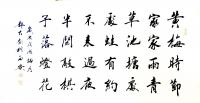 黃梅時節
家家雨青
草池塘處
處蛙有約
不來過夜
半閑敲棋
子落燈花